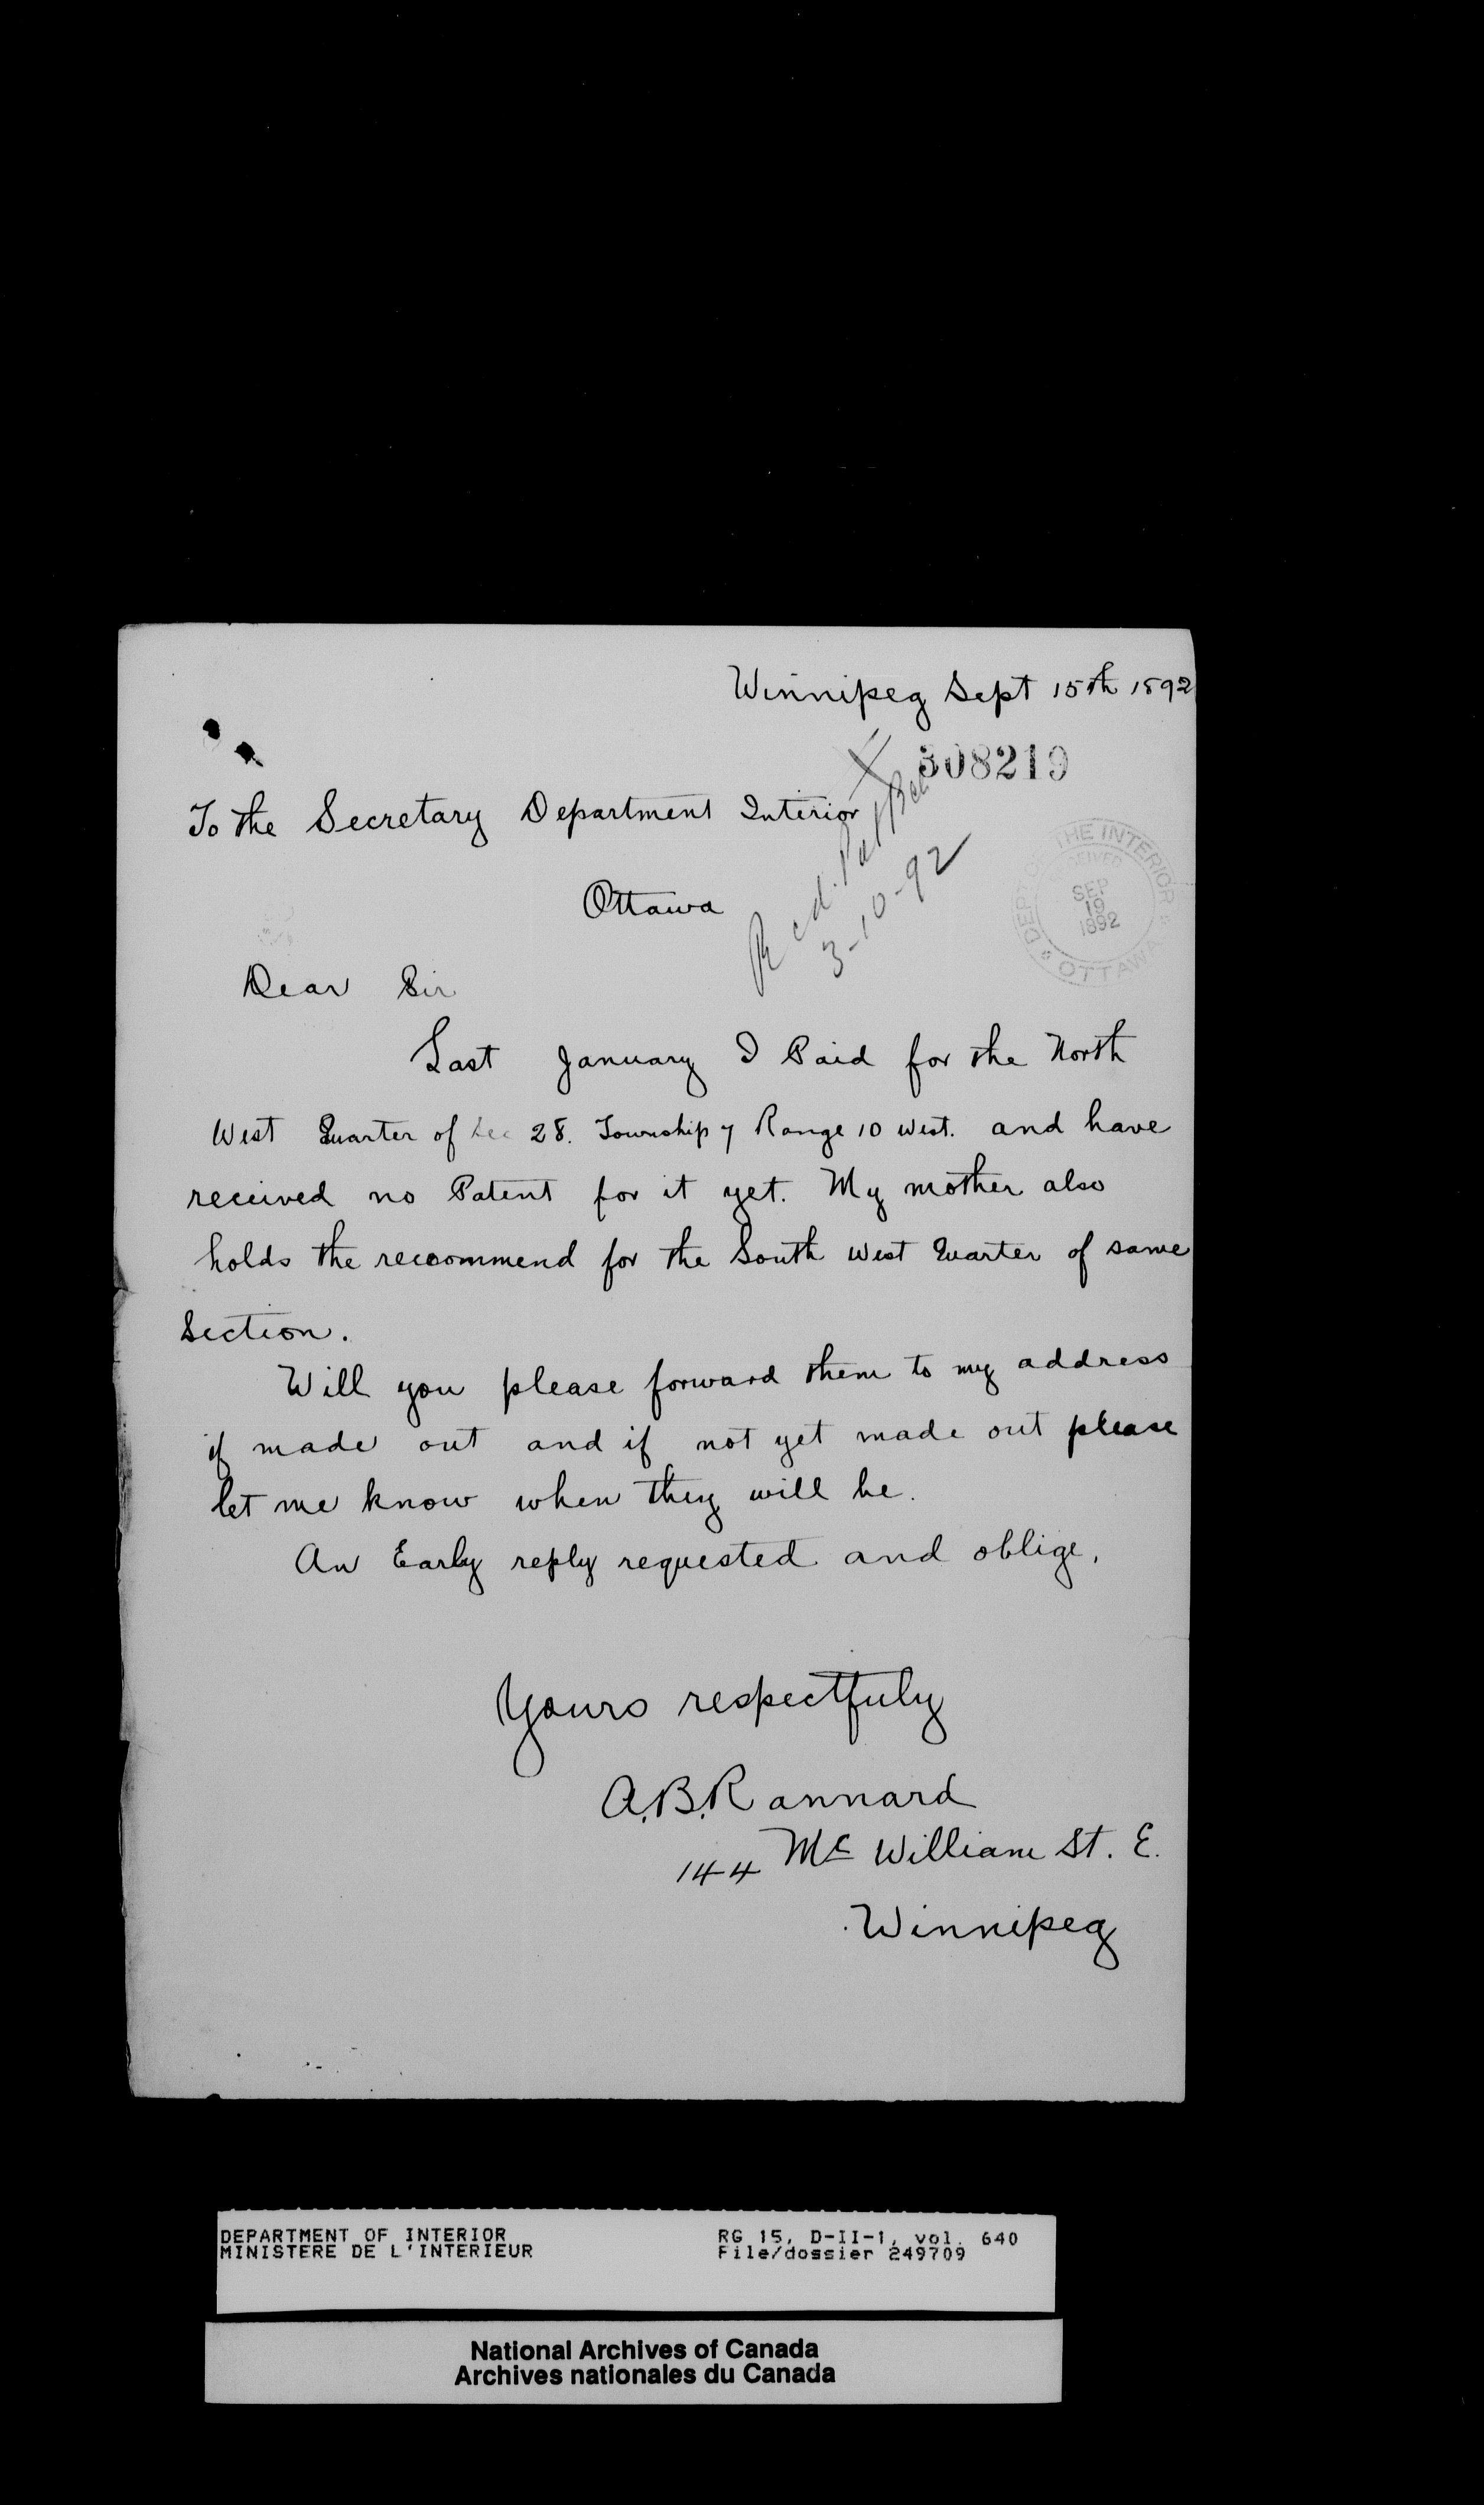 Winnipeg Sept 15th 1892
308219
To the Secretary Department Interior
Ottawa
3-10-92
DEPT. OF THE INTERIOR
RECEIVED
SEP
19
1892
OTTAWA
Dear Sir
Last January I Paid for the North
West Quarter of Sec 28. Township 7 Range 10 West. and have
received no Patent for it yet. My mother also
holds the reccommend for the South West Quarter of same
Section.
Will you please forward them to my address
if made out and if not yet made out please
let me know when they will be.
An Early reply requested and oblige,
Yours respectfuly
A.B. Rannard
144 Mc William St. E.
Winnipeg
DEPARTMENT OF INTERIOR
MINISTERE DE L'INTERIEUR
RG 15, D-II-1, vol. 640
File/dossier 249709
National Archives of Canada
Archives nationales du Canada